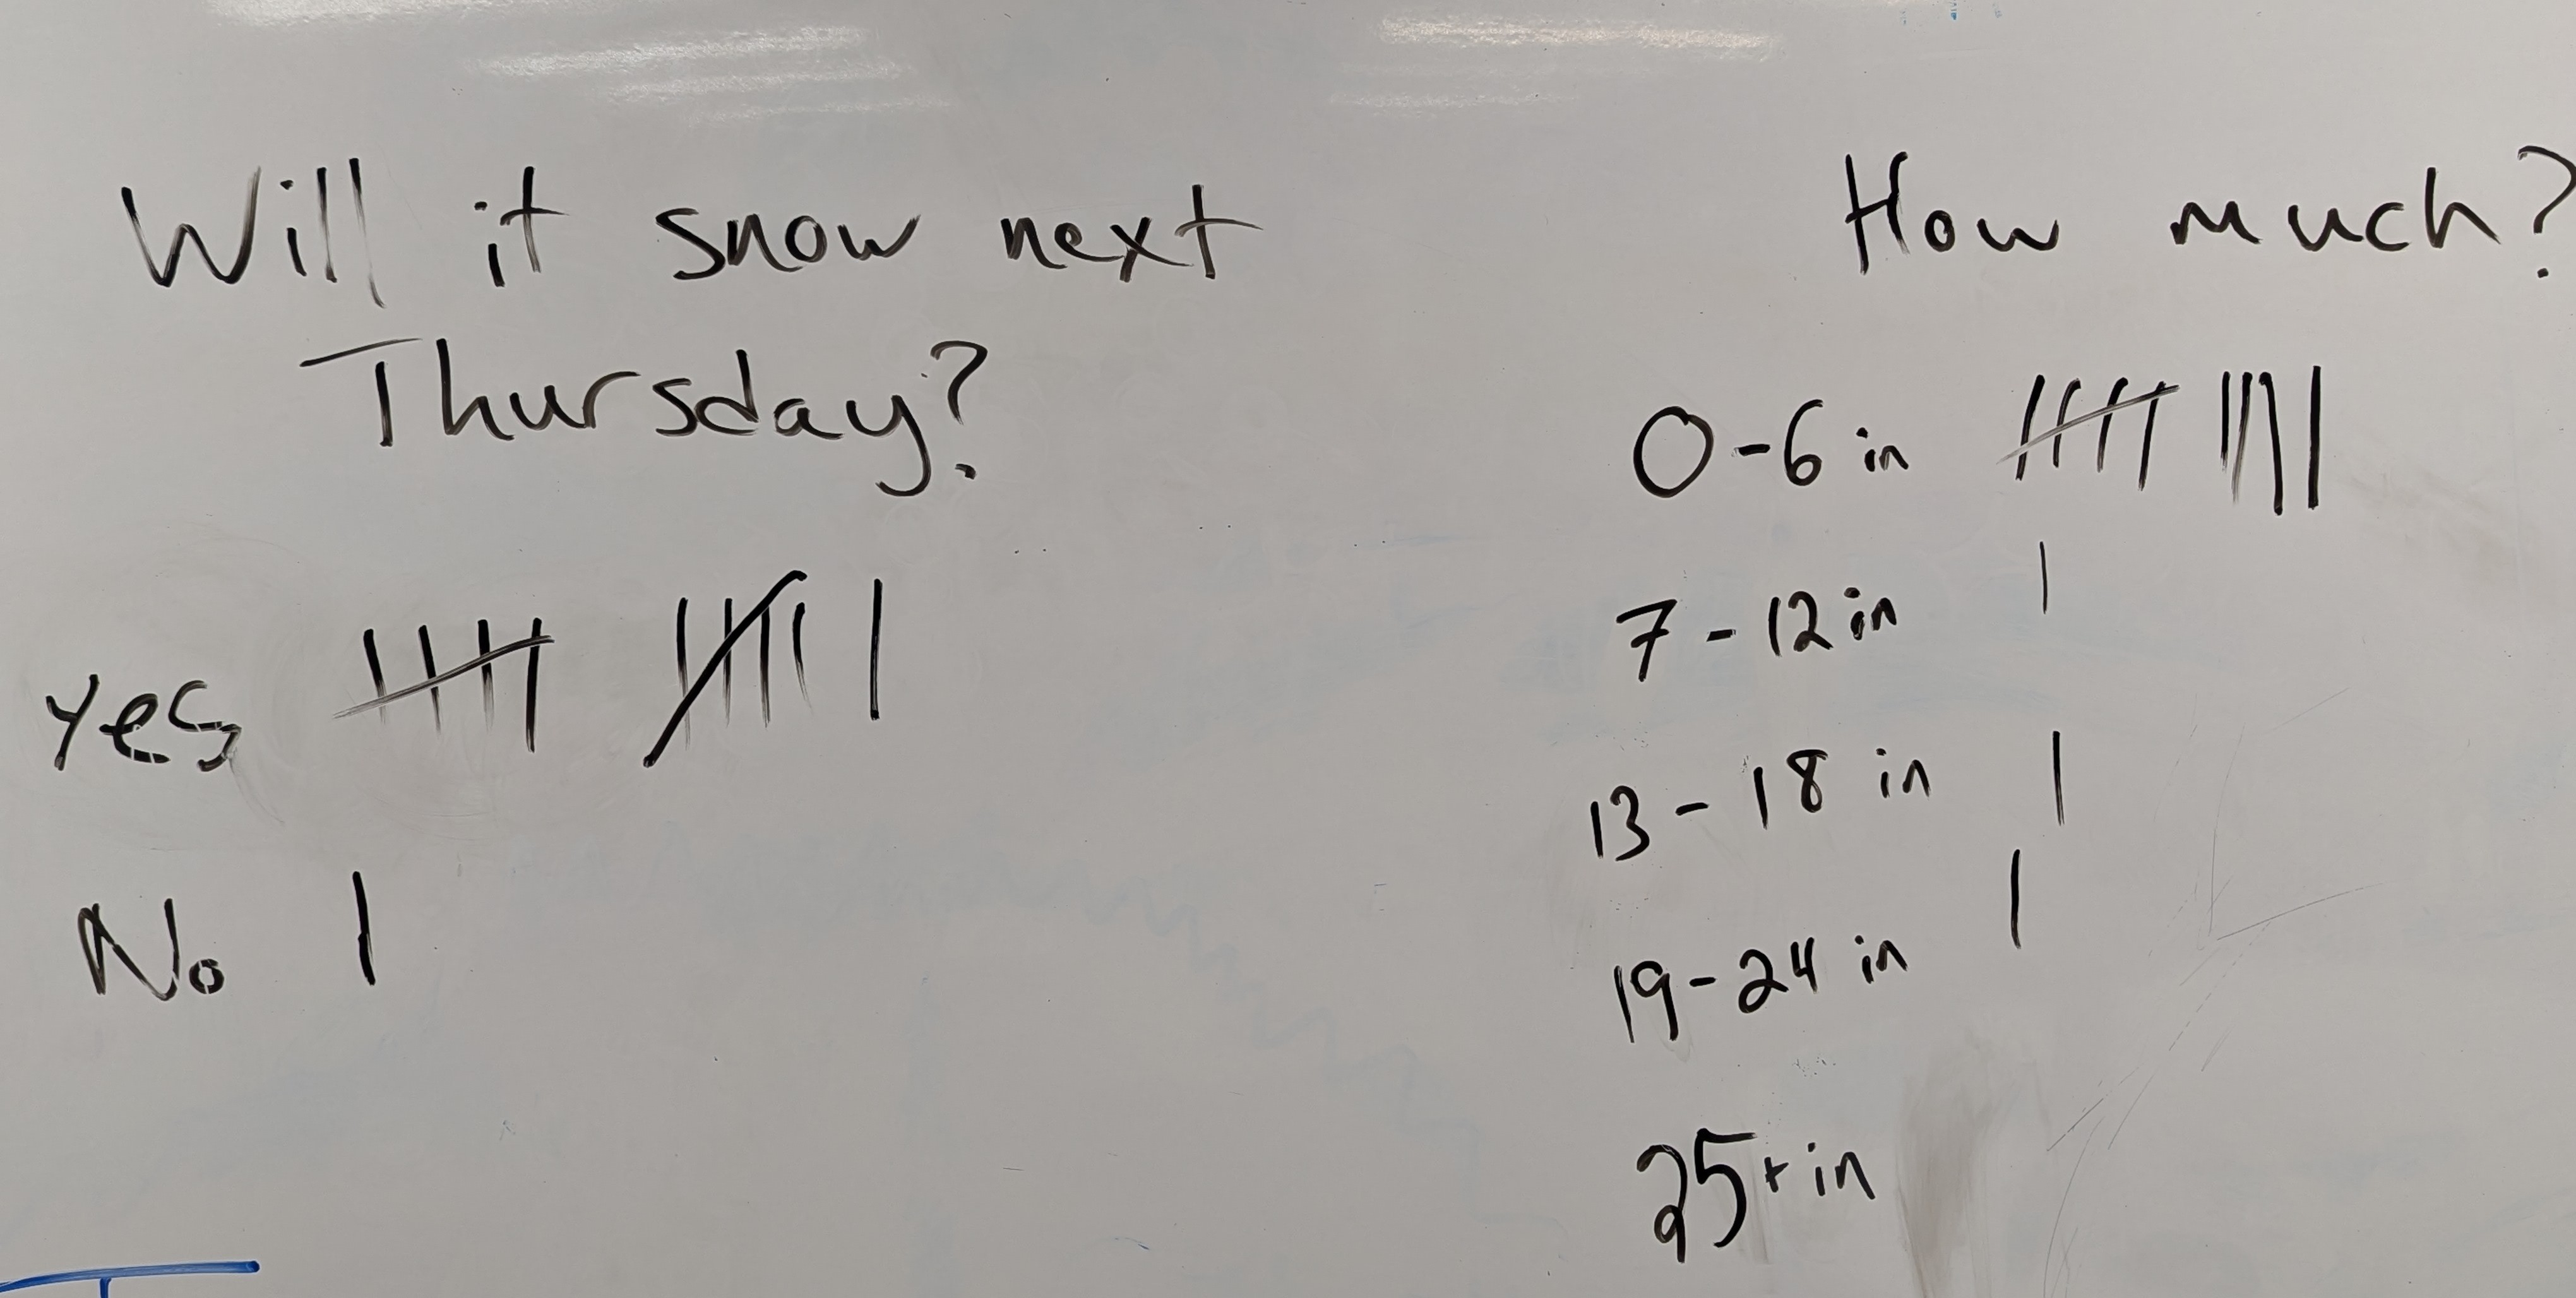 Will it snow next
Thursday?
Yes 𝍸 𝍸 |
No |
How much?
0-6 in 𝍸 ||||
7-12 in |
13-18 in |
19-24 in |
25+ in